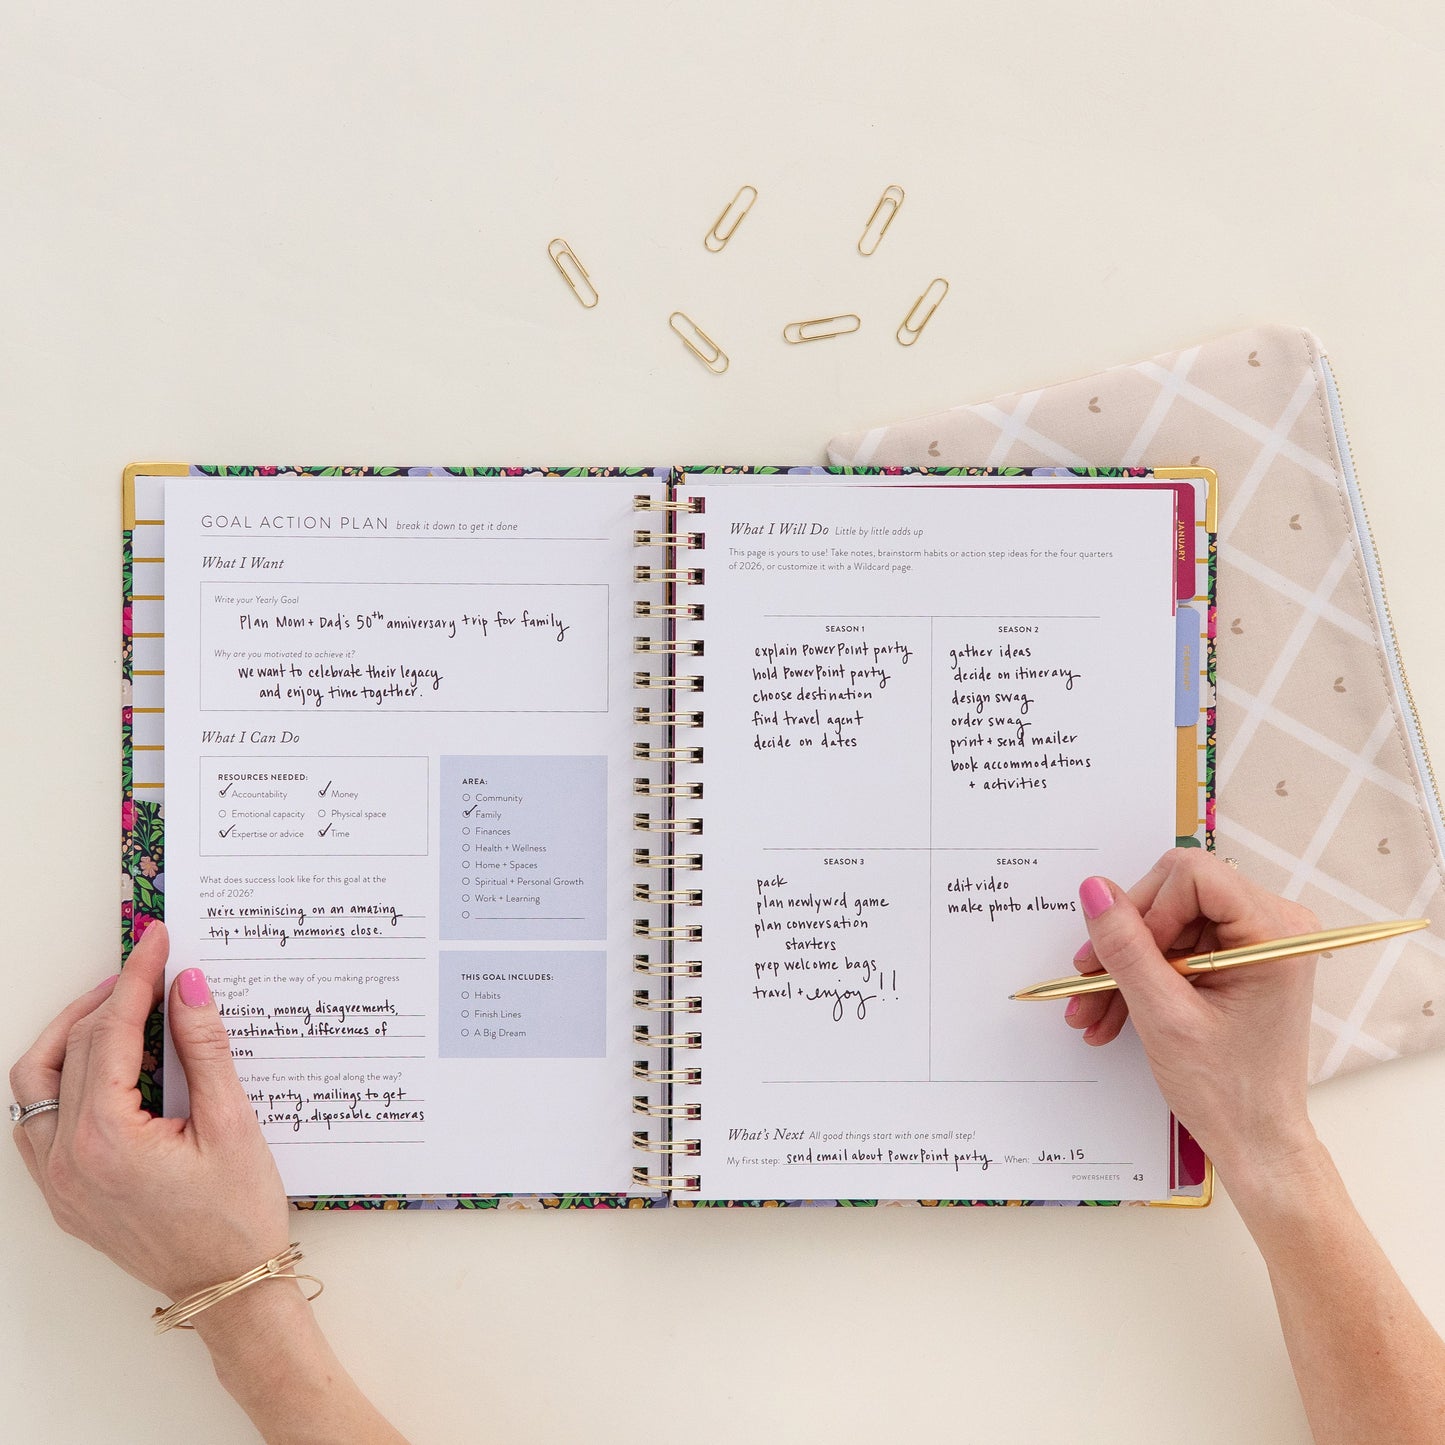 GOAL ACTION PLAN break it down to get it done
What I Want
Write your Yearly Goal
Plan Mom + Dad's 50th anniversary trip for family
Why are you motivated to achieve it?
We want to celebrate their legacy
and enjoy time together.
What I Can Do
RESOURCES NEEDED:
Accountability Money
Emotional capacity Physical space
Expertise or advice Time
AREA:
Community
Family
Finances
Health + Wellness
Home + Spaces
Spiritual + Personal Growth
Work + Learning
What does success look like for this goal at the
end of 2026?
We're reminiscing on an amazing
trip + holding memories close.
What might get in the way of you making progress
this goal?
decision, money disagreements,
differences of
THIS GOAL INCLUDES:
Habits
Finish Lines
A Big Dream
you have fun with this goal along the way?
party, mailings to get
swag, disposable cameras
What I Will Do Little by little adds up
This page is yours to use! Take notes, brainstorm habits or action step ideas for the four quarters
of 2026, or customize it with a Wildcard page.
SEASON 1
explain PowerPoint party
hold PowerPoint party
choose destination
find travel agent
decide on dates
SEASON 2
gather ideas
decide on itinerary
design swag
order swag
print + send mailer
book accommodations
+ activities
SEASON 3
pack
plan newlywed game
plan conversation
starters
prep welcome bags
travel + enjoy!!
SEASON 4
edit video
make photo albums
What's Next All good things start with one small step!
My first step: send email about PowerPoint party When: Jan. 15
POWERSHEETS 43
JANUARY